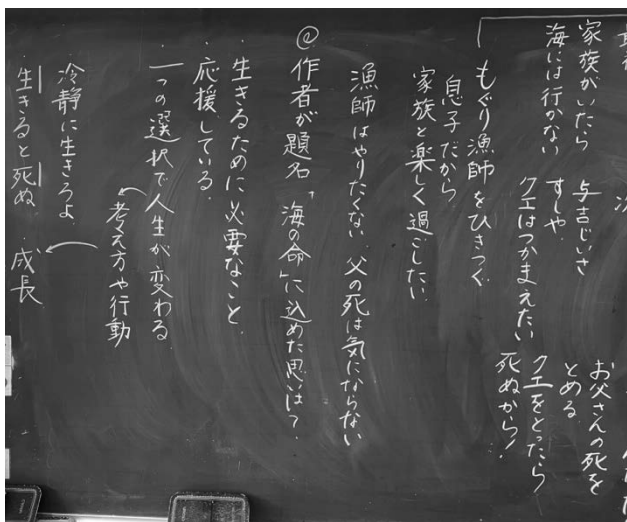 家族がいたら
海には行かない
与吉じいさ
すしや
クエはつかまえたい
お父さんの死を
とめる
クエをとったら
死ぬから!
もぐり漁師をひきつぐ
息子だから
家族と楽しく過ごしたい
漁師はやりたくない 父の死は気にならない
@作者が題名「海の命」に込めた思いは?
・生きるために必要なこと
・応援している。
・一つの選択で人生が変わる
考え方や行動
冷静に生きろよ
・生きると死ぬ ・成長